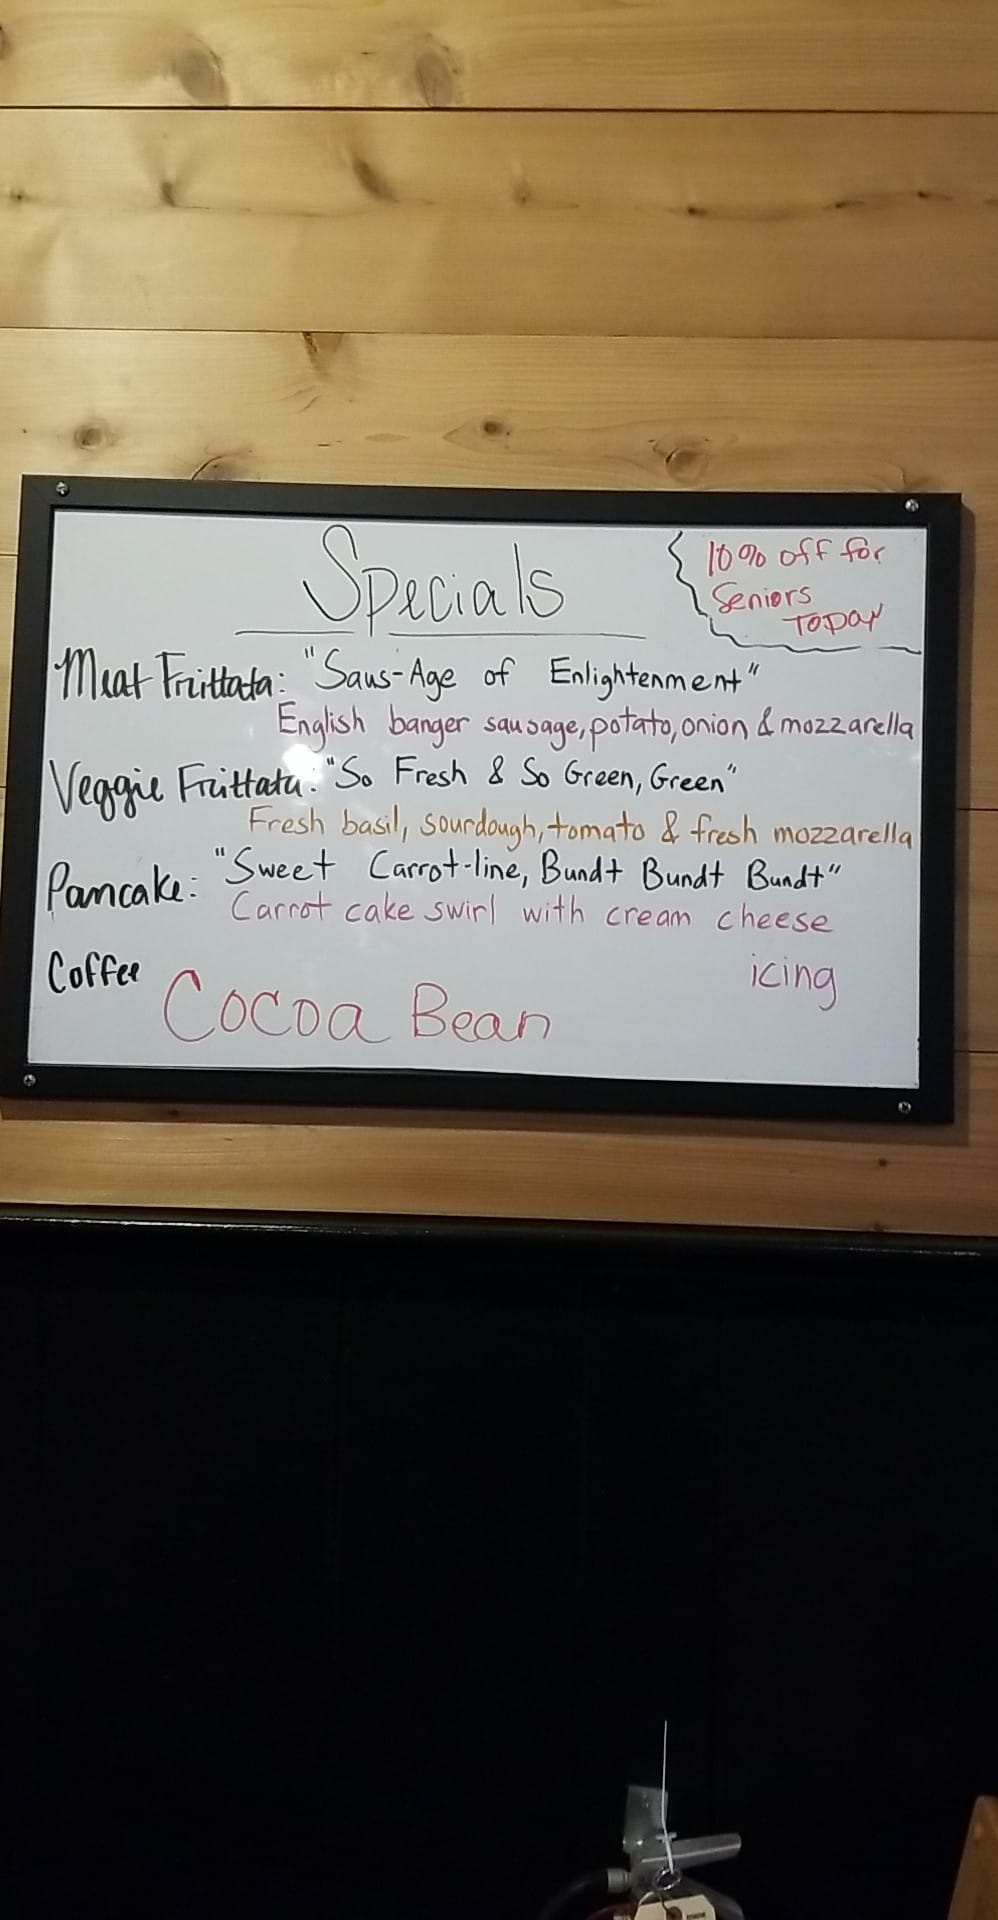 Specials
10% off for
Seniors
TODAY
Meat Frittata: "Saus-Age of Enlightenment"
English banger sausage, potato, onion & mozzarella
Veggie Frittata: "So Fresh & So Green, Green"
Fresh basil, sourdough, tomato & fresh mozzarella
Pancake: "Sweet Carrot-line, Bundt Bundt Bundt"
Carrot cake swirl with cream cheese
icing
Coffee
Cocoa Bean